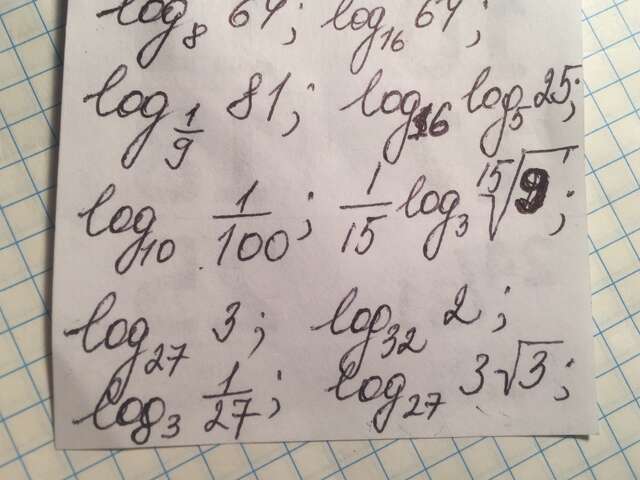 log₈ 64; log₁₆ 64;
log_{1/9} 81; log₁₆ log₅ 25;
log₁₀ 1/100; 1/15 log₃ ¹⁵√9;
log₂₇ 3; log₃₂ 2;
log₃ 1/27; log₂₇ 3√3;